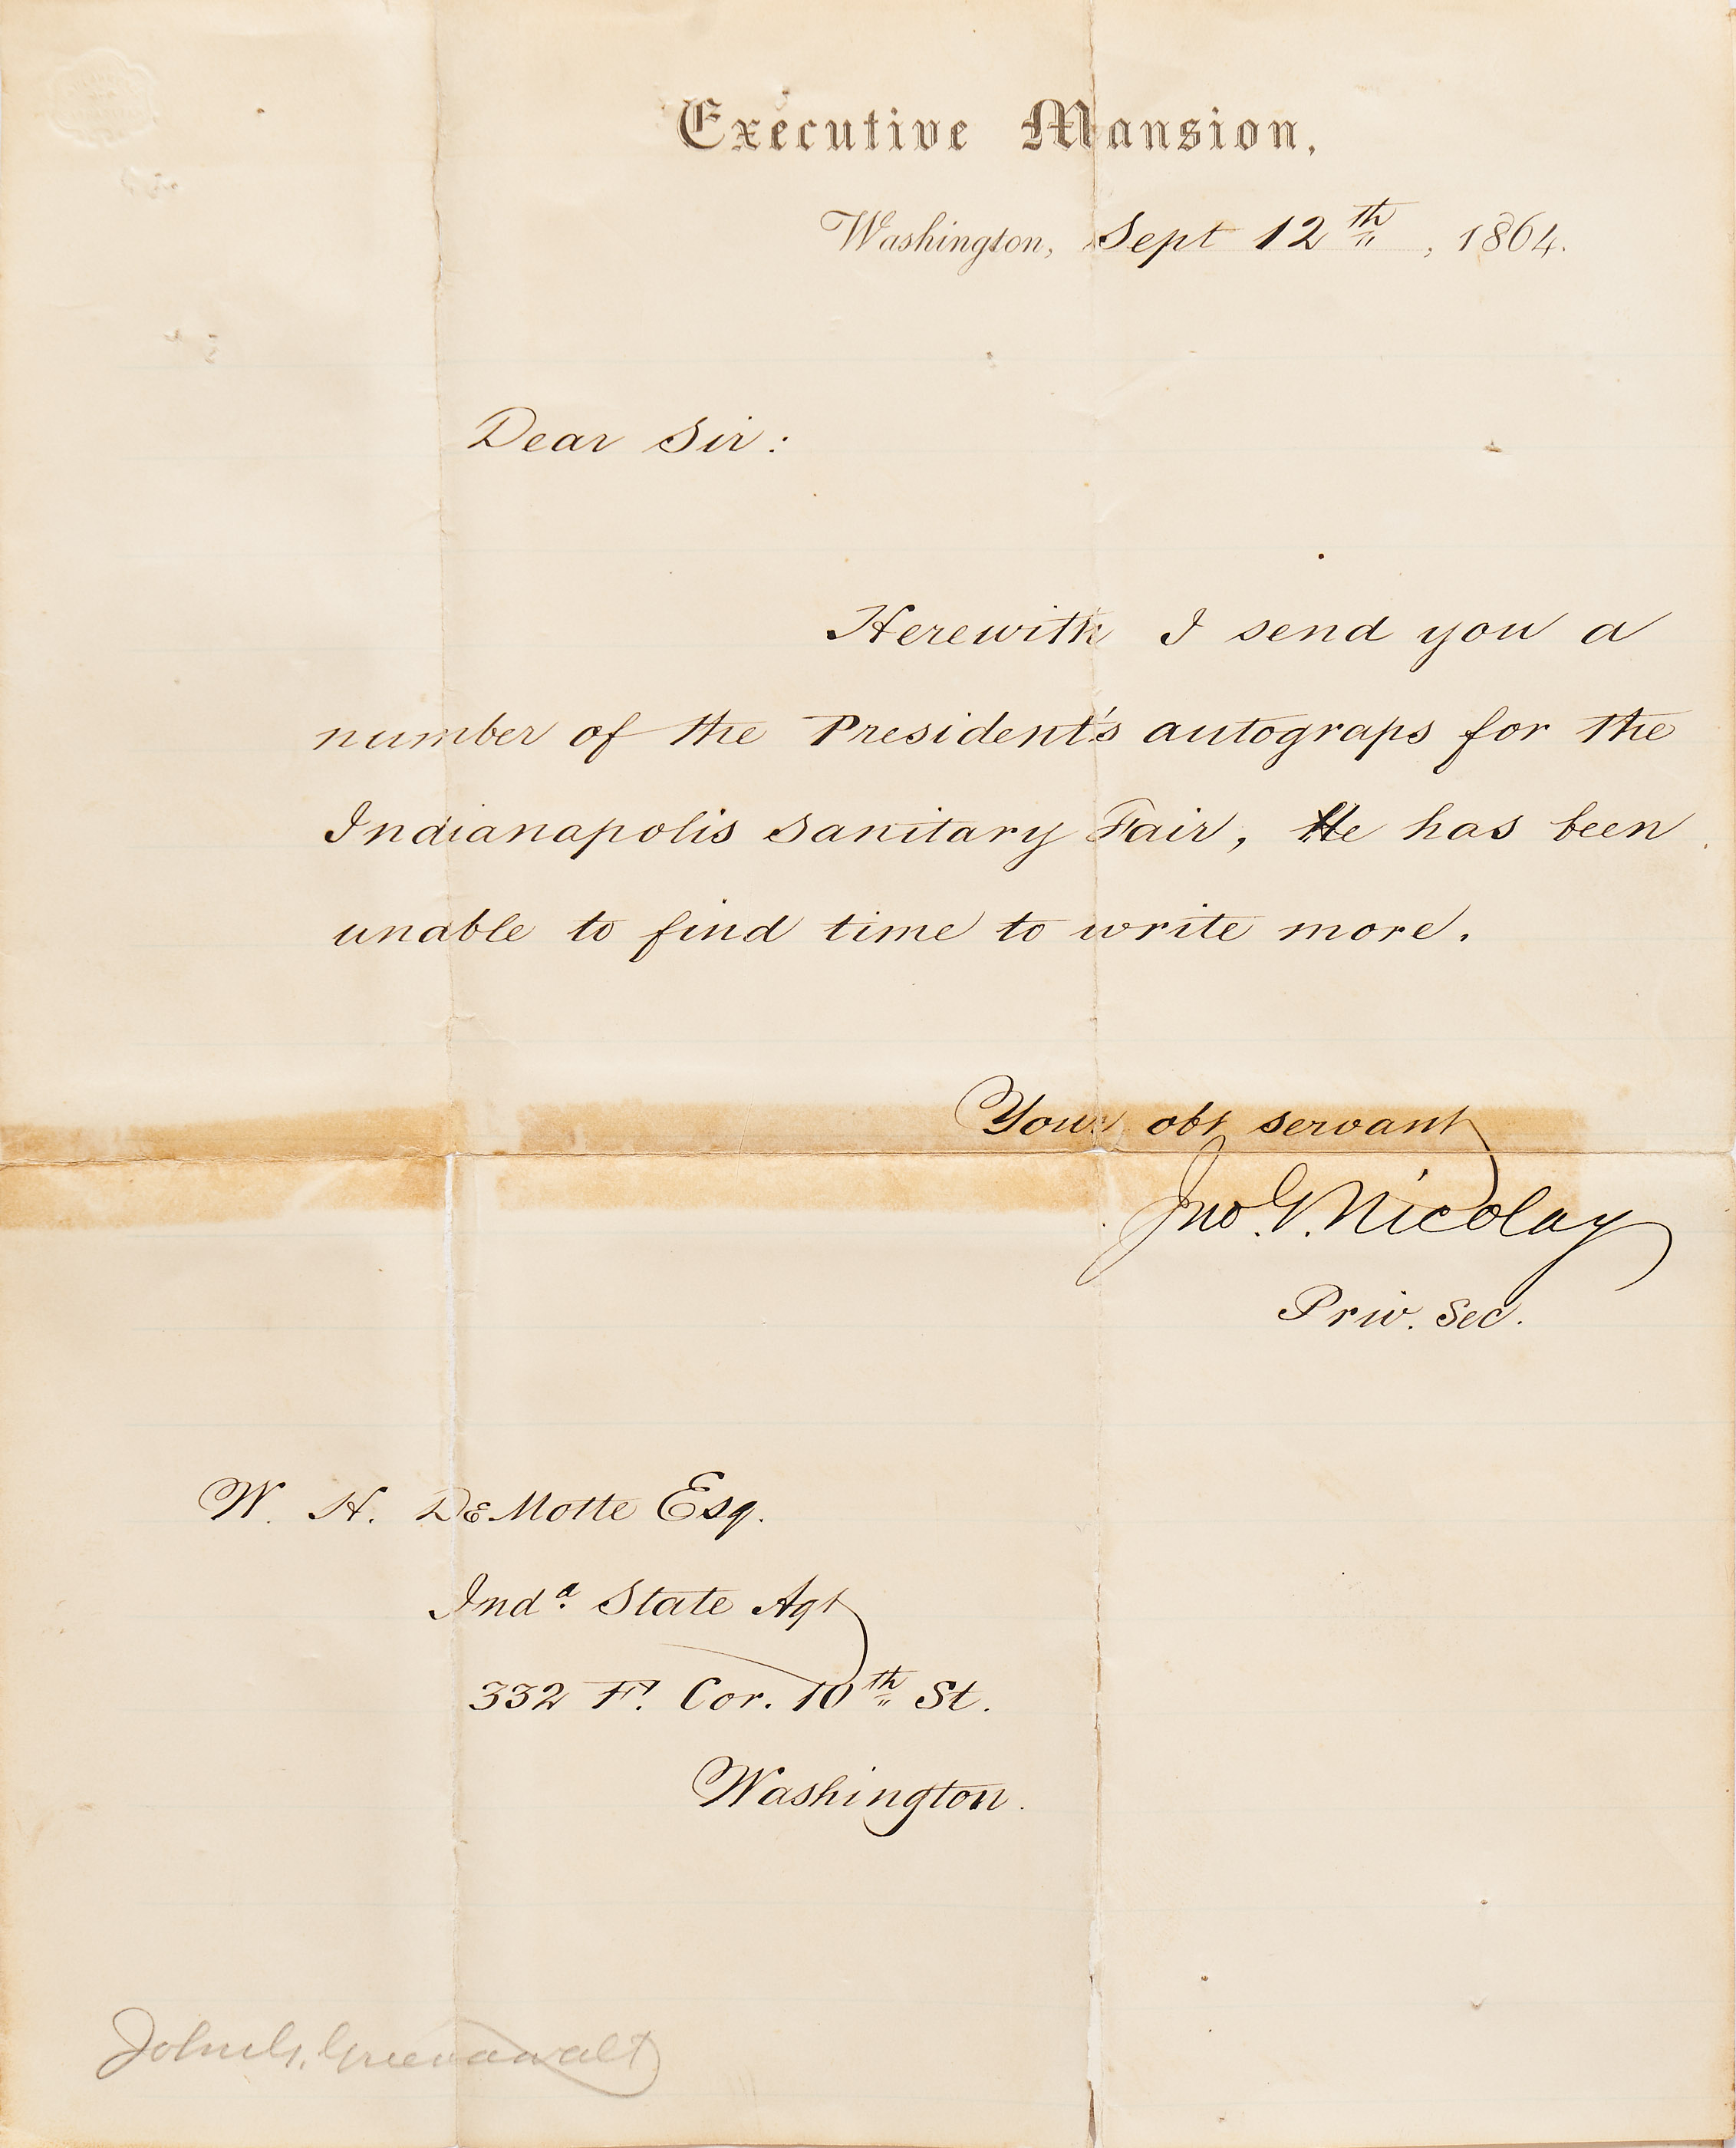 Executive Mansion,
Washington, Sept 12th, 1864.
Dear Sir:
Herewith I send you a
number of the President's autograps for the
Indianapolis Sanitary Fair, He has been
unable to find time to write more.
Your obt servant
Jno. G. Nicolay
Priv. Sec.
W. H. DeMotte Esq.
Inda. State Agt
332 F. Cor. 10th St.
Washington.
John G. Greenawalt